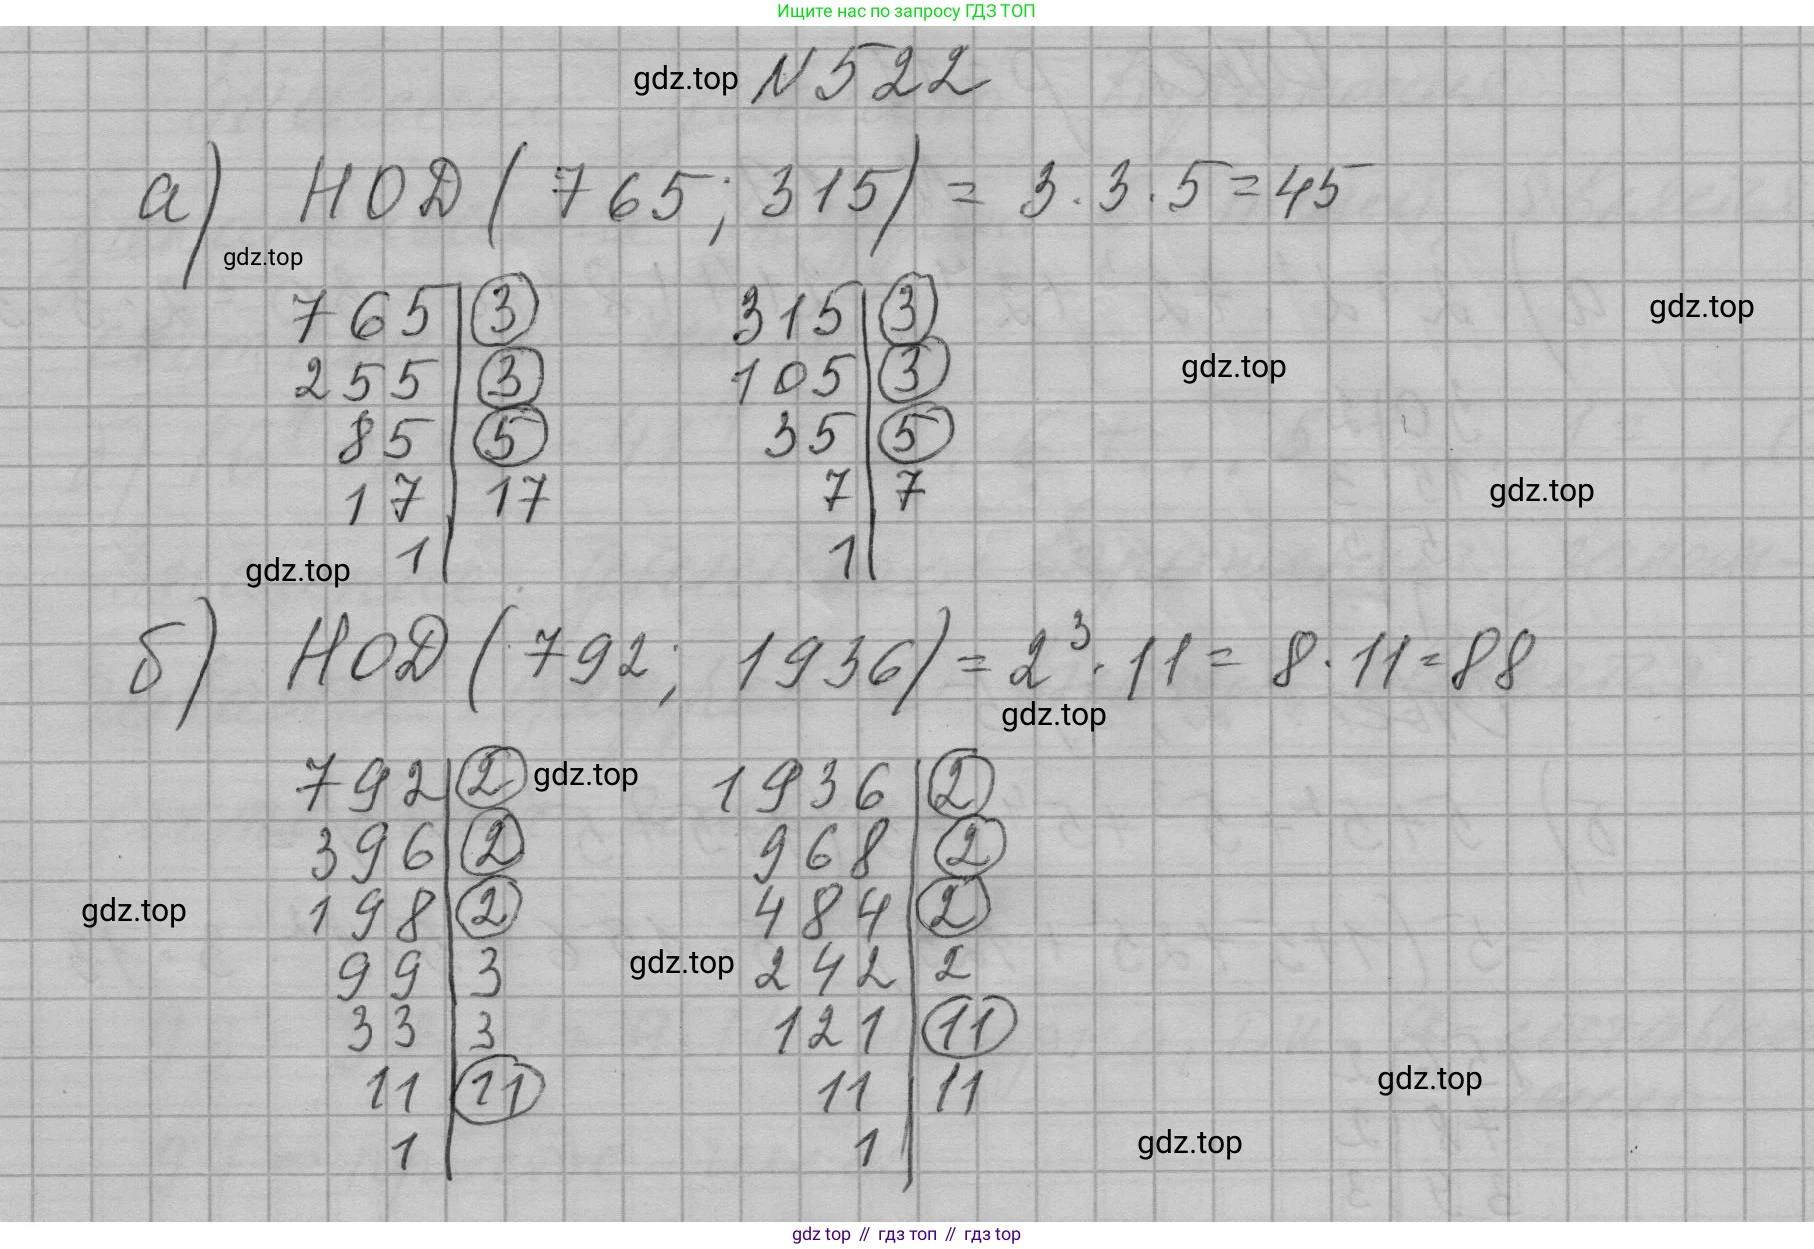 Ищите нас по запросу ГДЗ ТОП
gdz.top N 522
а) НОД ( 765; 315) = 3 · 3 · 5 = 45
gdz.top
765 | 3 315 | 3 gdz.top
255 | 3 105 | 3 gdz.top
85 | 5 35 | 5
17 | 17 7 | 7 gdz.top
gdz.top 1 | 1 |
б) НОД ( 792; 1936) = 2³ · 11 = 8 · 11 = 88
gdz.top
792 | 2 gdz.top 1936 | 2
396 | 2 968 | 2
gdz.top 198 | 2 484 | 2
99 | 3 gdz.top 242 | 2
33 | 3 121 | 11
11 | 11 11 | 11 gdz.top
1 | 1 | gdz.top
gdz top // гдз топ // gdz top